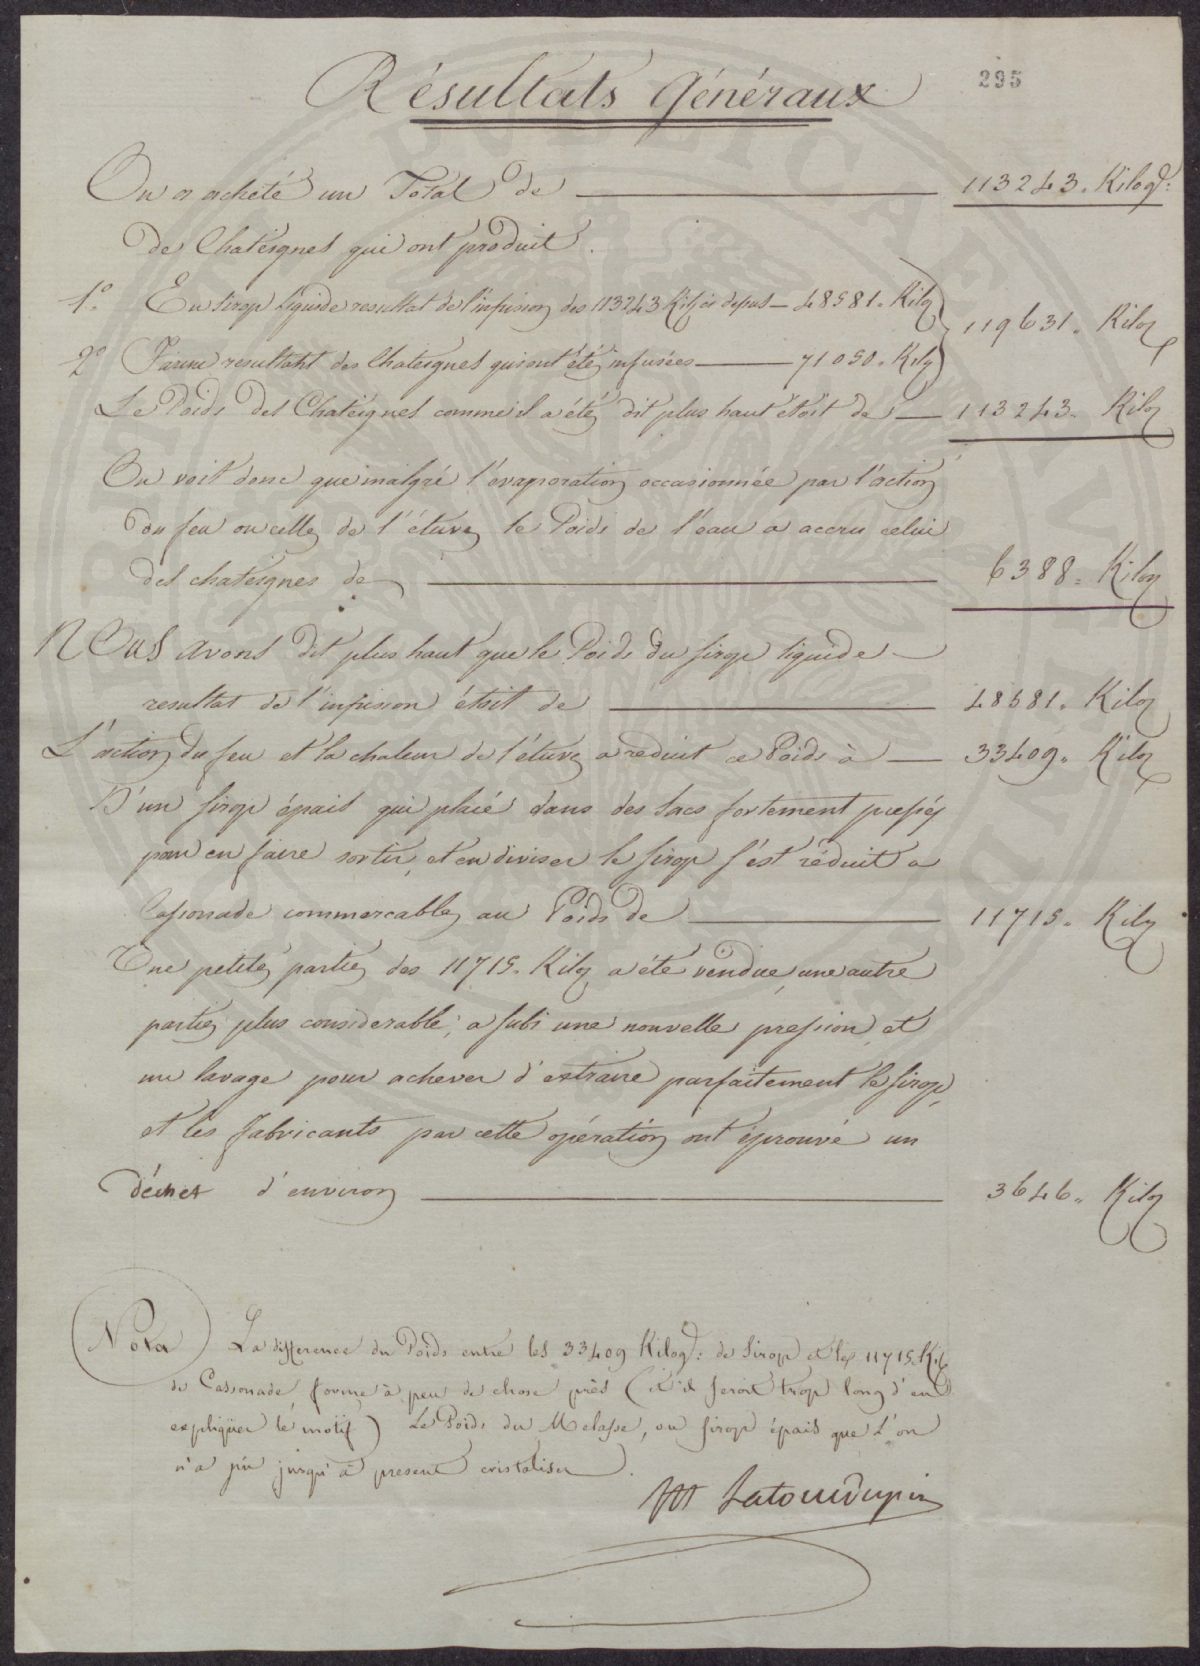 295
Résultats Généraux
On a acheté un Total de 113243. Kilog:
de Chateignes qui ont produit.
1º. En sirop liquide resultat de l'infusion des 113243 Kilog 48581. Kilog
119631. Kilog
2º Farine resultant des Chateignes qui ont été infusées 71050. Kilog
Le Poids des Chateignes comme il a été dit plus haut étoit de 113243. Kilog
On voit donc que malgré l'évaporation occasionnée par l'action
du feu ou celle de l'étuve le Poids de l'eau a accru celui
des chateignes de 6388. Kilog
Nous avons dit plus haut que le Poids du sirop liquide
resultat de l'infusion étoit de 48581. Kilog
L'action du feu et la chaleur de l'étuve a reduit ce Poids à 33409. Kilog
D'un sirop épais qui placé dans des sacs fortement pressés
pour en faire sortir, et en diviser le sirop s'est réduit a
Cassonade commercable au Poids de 11715. Kilog
Une petite partie des 11715. Kilog a été vendue, une autre
partie plus considerable, a subi une nouvelle pression et
un lavage pour achever d'extraire parfaitement le sirop,
et les fabricants par cette opération ont éprouvé un
déchet d'environ 3646. Kilog
Nota La difference du Poids entre les 33409 Kilog: de Sirop et les 11715 Kil
de Cassonade forme à peu de chose près (et il seroit trop long d'en
expliquer le motif) Le Poids du Melasse, ou sirop épais que l'on
n'a pu jusqu'à present cristaliser.
Latourdupin